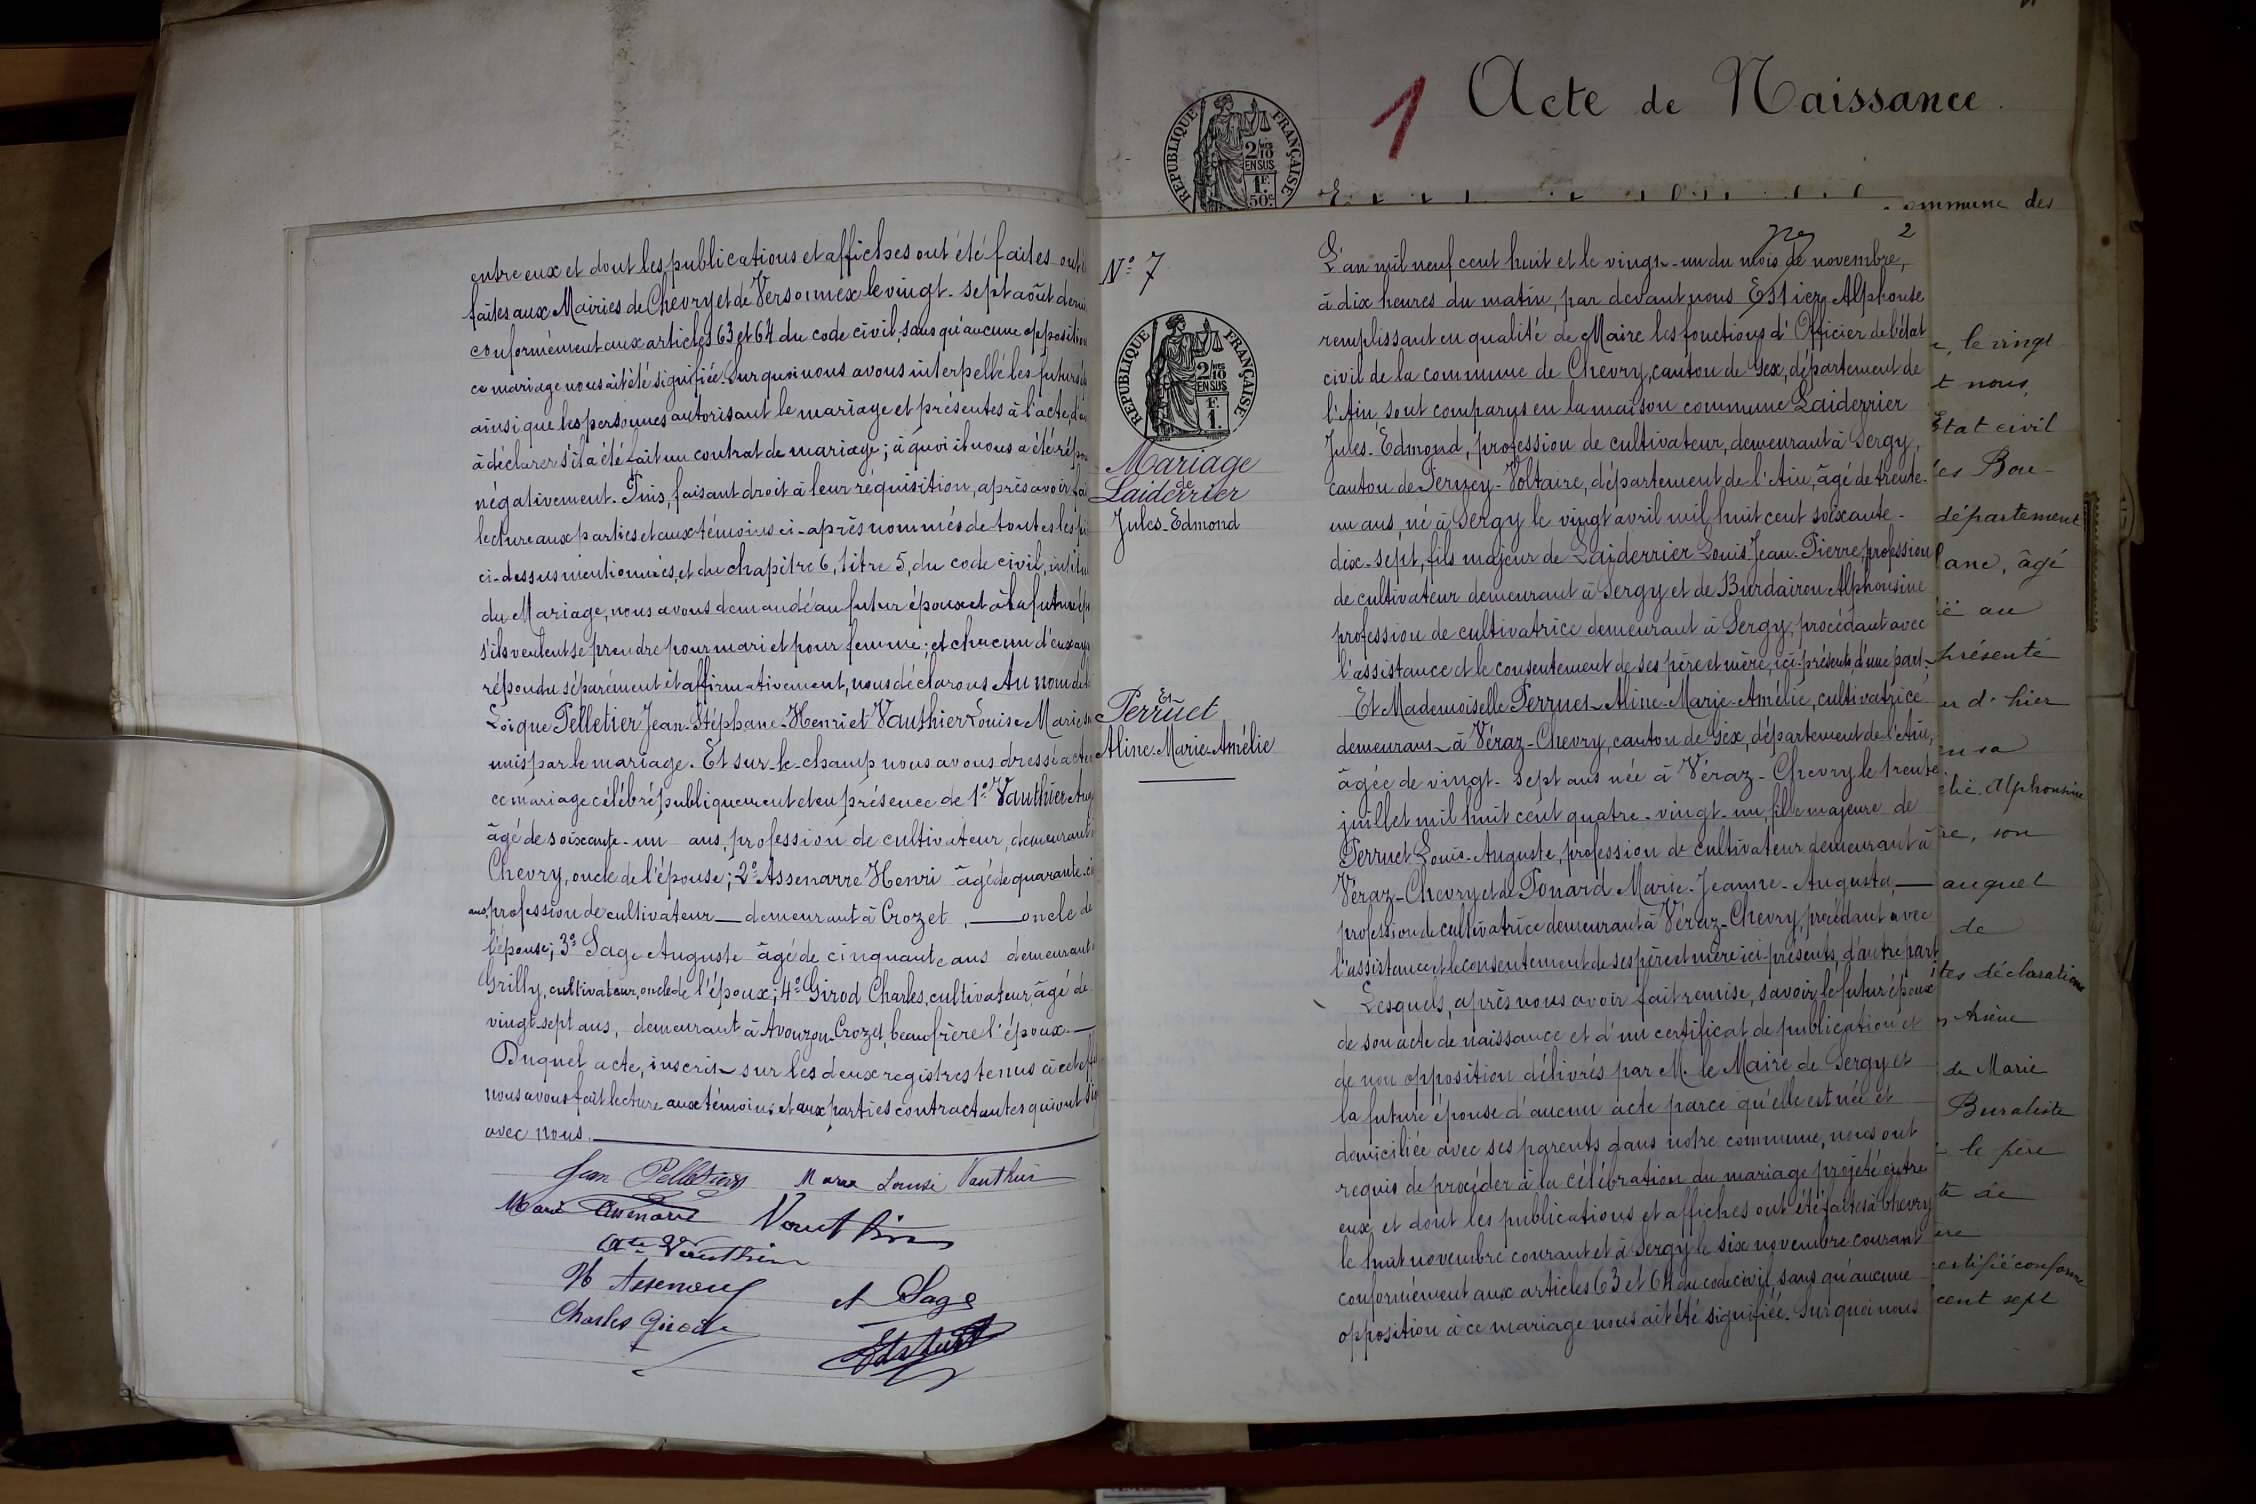 entre eux et dont les publications et affiches ont été faites ont été
faites aux Mairies de Chevry et de Versonnex le vingt-sept août dernier
conformément aux articles 63 et 64 du code civil, sans qu'aucune opposition
ce mariage nous ait été signifiée. Sur quoi nous avons interpellé les futurs ép
ainsi que les personnes autorisant le mariage et présentes à l'acte, d'av
à déclarer s'il a été fait un contrat de mariage; à quoi il nous a été répon
négativement. Puis, faisant droit à leur réquisition, après avoir fai
lecture aux parties et aux témoins ci-après nommés de toutes les piè
ci-dessus mentionnées, et du chapitre 6, titre 5, du code civil, intitulé
du Mariage, nous avons demandé au futur époux et à la future épo
s'ils veulent se prendre pour mari et pour femme; et chacun d'eux aya
répondu séparément et affirmativement, nous déclarons Au nom de la
Loi que Pelletier Jean-Stéphane-Henri et Vauthier Louise Marie so
unis par le mariage. Et sur-le-champ nous avons dressé acte de
ce mariage célébré publiquement et en présence de 1° Vauthier Aug
âgé de soixante-un ans, profession de cultivateur, demeurant à
Chevry, oncle de l'épouse; 2° Assenarre Henri âgé de quarante-ci
ans, profession de cultivateur demeurant à Crozet, oncle de
l'épouse; 3° Sage Auguste âgé de cinquante ans demeurant à
Grilly, cultivateur, oncle de l'époux; 4° Girod Charles, cultivateur, âgé de
vingt-sept ans, demeurant à Avouzon-Crozet, beau frère l'époux
Duquel acte, inscrit sur les deux registres tenus à cet eff
nous avons fait lecture aux témoins et aux parties contractantes qui ont sig
avec nous.
Jean Pelletier Marie Louise Vauthier
Marie Vauthier
Vauthier
H Assenarre
A Sage
Charles Girod
1 Acte de Naissance
RÉPUBLIQUE FRANÇAISE
2/10 EN SUS
1F 50c
ommune des
2
N° 7
RÉPUBLIQUE FRANÇAISE
2/10 EN SUS
1F.
Mariage
de
Laiderrier
Jules-Edmond
Et
Perruet
Aline-Marie-Amélie
L'an mil neuf cent huit et le vingt-un du mois de novembre,
à dix heures du matin, par devant nous Estier Alphonse
remplissant en qualité de Maire les fonctions d'Officier de l'état
civil de la commune de Chevry, canton de Gex, département de
l'Ain sont comparus en la maison commune Laiderrier
Jules-Edmond, profession de cultivateur, demeurant à Sergy,
canton de Ferney-Voltaire, département de l'Ain, âgé de trente-
un ans, né à Sergy le vingt avril mil huit cent soixante-
dix-sept, fils majeur de Laiderrier Louis-Jean-Pierre, profession
de cultivateur demeurant à Sergy et de Burdairon Alphonsine
profession de cultivatrice demeurant à Sergy, procédant avec
l'assistance et le consentement de ses père et mère, ici présents, d'une part
Et Mademoiselle Perruet Aline-Marie-Amélie, cultivatrice
demeurant à Véraz-Chevry, canton de Gex, département de l'Ain,
âgée de vingt-sept ans née à Véraz-Chevry le trente
juillet mil huit cent quatre-vingt-un, fille majeure de
Perruet Louis-Auguste, profession de cultivateur demeurant à
Véraz-Chevry et de Ponard Marie-Jeanne-Augusta,
profession de cultivatrice demeurant à Véraz-Chevry, procédant avec
l'assistance et le consentement de ses père et mère ici présents, d'autre part
Lesquels, après nous avoir fait remise, savoir, le futur époux
de son acte de naissance et d'un certificat de publication et
de non opposition délivrés par M. le Maire de Sergy et
la future épouse d'aucun acte parce qu'elle est née et
domiciliée avec ses parents dans notre commune, nous ont
requis de procéder à la célébration du mariage projeté entre
eux et dont les publications et affiches ont été faites à Chevry
le huit novembre courant et à Sergy le six novembre courant
conformément aux articles 63 et 64 du code civil, sans qu'aucune
opposition à ce mariage nous ait été signifiée. Sur quoi nous
, le vingt
t nous,
Etat civil
es Bou-
département
ane, âgé
é au
présenté
d'hier
sa
Alphonsine
, son
auquel
de
tes déclarations
de Marie
Buraliste
le père
te de
ertifié conforme
cent sept